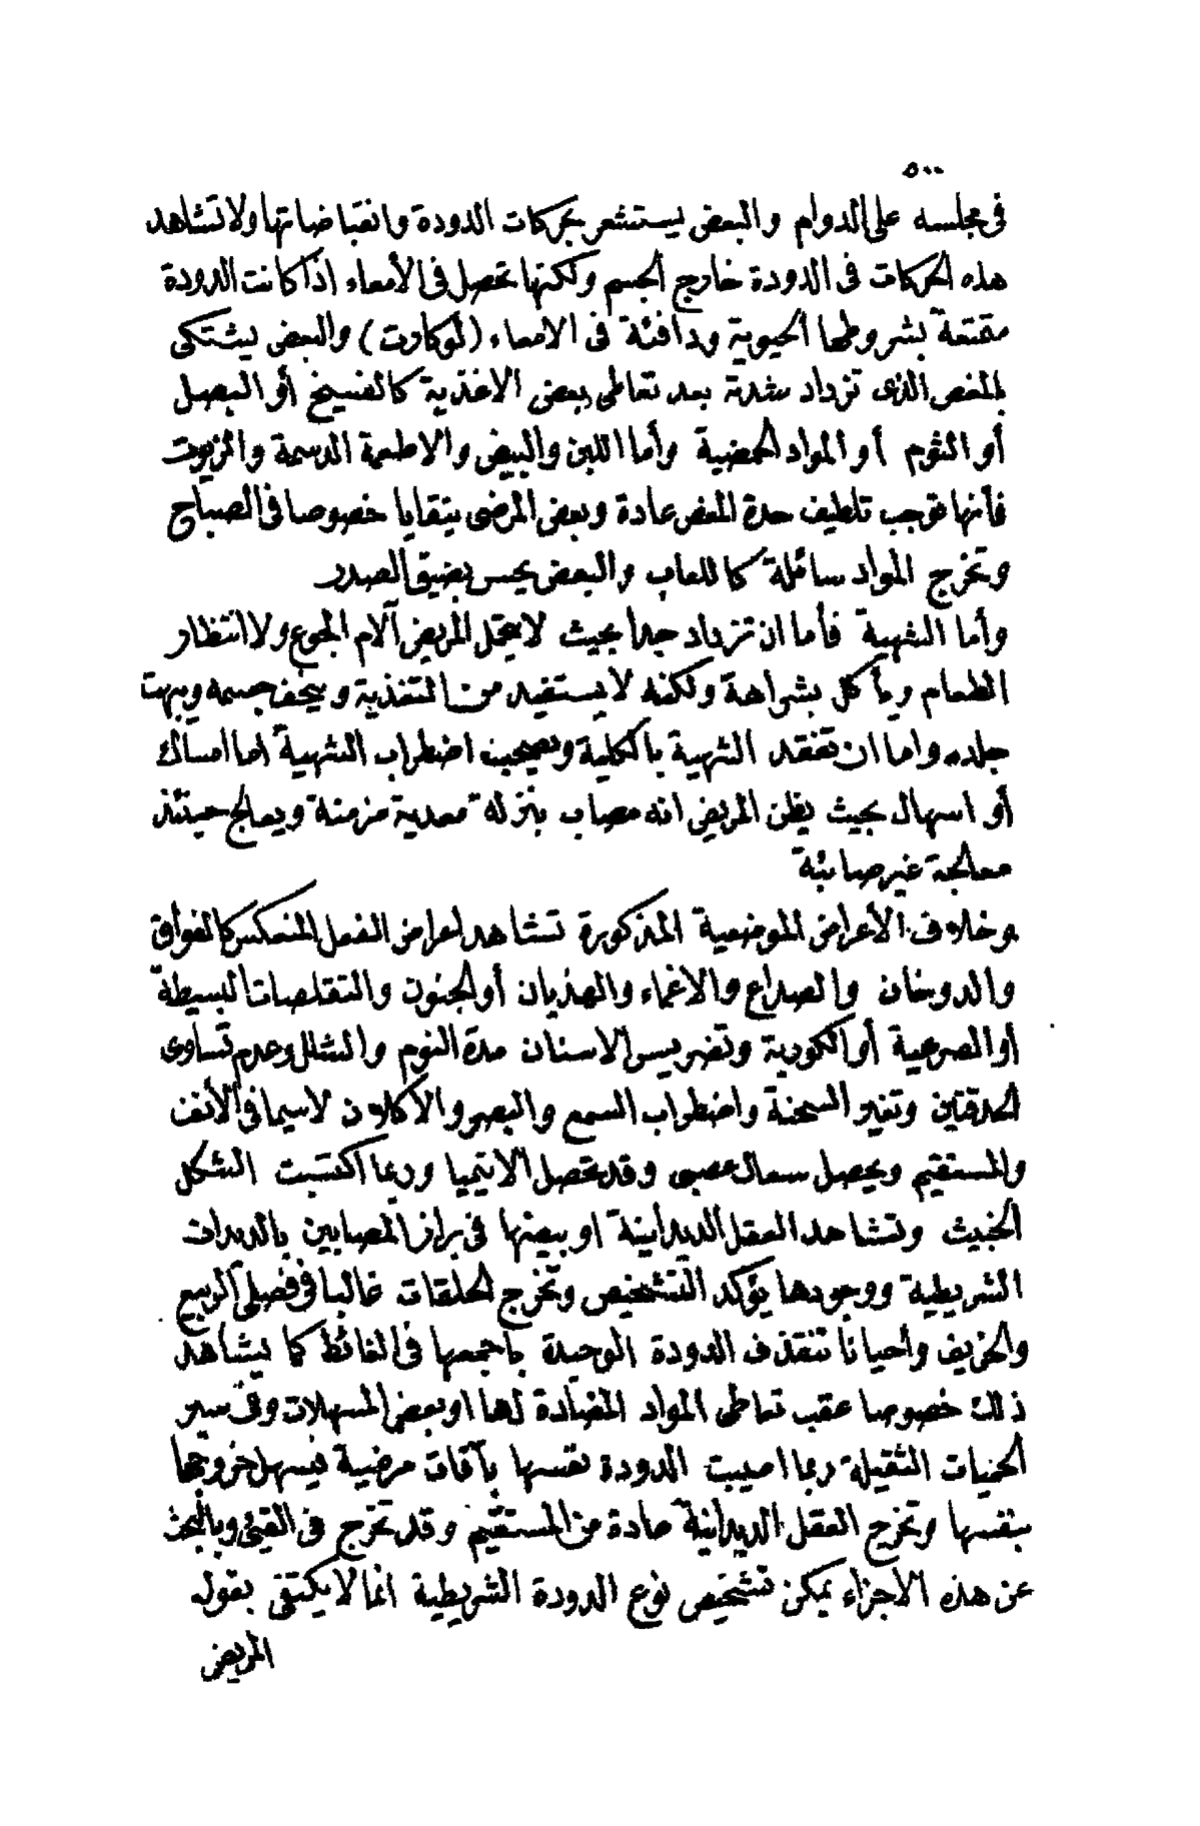 ٥٠٠
فى مجلسه على الدوام والبعض يستشعر بحركات الدودة وانقباضاتها ولا تشاهد
هذه الحركات فى الدودة خارج الجسم ولكنها تحصل فى الأمعاء اذا كانت الدودة
متمتعة بشروطها الحيوية ودافئة فى الامعاء (لوكارت) والبعض يشتكى
بالمغص الذى تزداد شدته بعد تعاطى بعض الاغذية كالفسيخ أو البصل
أو الثوم أو المواد الحمضية وأما اللبن والبيض والاطعمة الدسمة والزيوت
فأنها توجب تلطيف حدة المغص عادة وبعض المرضى يتقايا خصوصا فى الصباح
وتخرج المواد سائلة كاللعاب والبعض يحس بضيق الصدر
وأما الشهية فأما ان تزداد جدا بحيث لا يتحمل المريض آلام الجوع ولا انتظار
الطعام ويأكل بشراهة ولكنه لا يستفيد من التغذية وينحف جسمه ويبهت
جلده واما ان تفقد الشهية بالكلية ويصحب اضطراب الشهية اما امساك
أو اسهال بحيث يظن المريض انه مصاب بنزلة معدية مزمنة ويعالج حينئذ
معالجة غير صائبة
وخلاف الأعراض الموضعية المذكورة تشاهد اعراض الفعل المنعكس كالفواق
والدوخان والصداع والاغماء والهذيان أو الجنون والتقلصات البسيطة
أو الصرعية أو الكورية وتضريس الاسنان مدة النوم والشلل وعدم تساوى
الحدقتين وتغير السحنة واضطراب السمع والبصر والأكلان لاسيما فى الأنف
والمستقيم ويحصل سعال عصبى وقد تحصل الانيميا وربما اكتسبت الشكل
الخبيث وتشاهد العقل الديدانية او بيضها فى براز المصابين بالديدان
الشريطية ووجودها يؤكد التشخيص وتخرج الحلقات غالبا فى فصلى الربيع
والخريف وأحيانا تنقذف الدودة الوحيدة بأجمعها فى الغائط كما يشاهد
ذلك خصوصا عقب تعاطى المواد المضادة لها او بعض المسهلات وفى سير
الحميات الثقيلة ربما اصيبت الدودة نفسها بآفات مرضية فيسهل خروجها
بنفسها وتخرج العقل الديدانية عادة من المستقيم وقد تخرج فى القيئ وبالبحث
عن هذه الاجزاء يمكن تشخيص نوع الدودة الشريطية انما لا يكتفى بقول
المريض